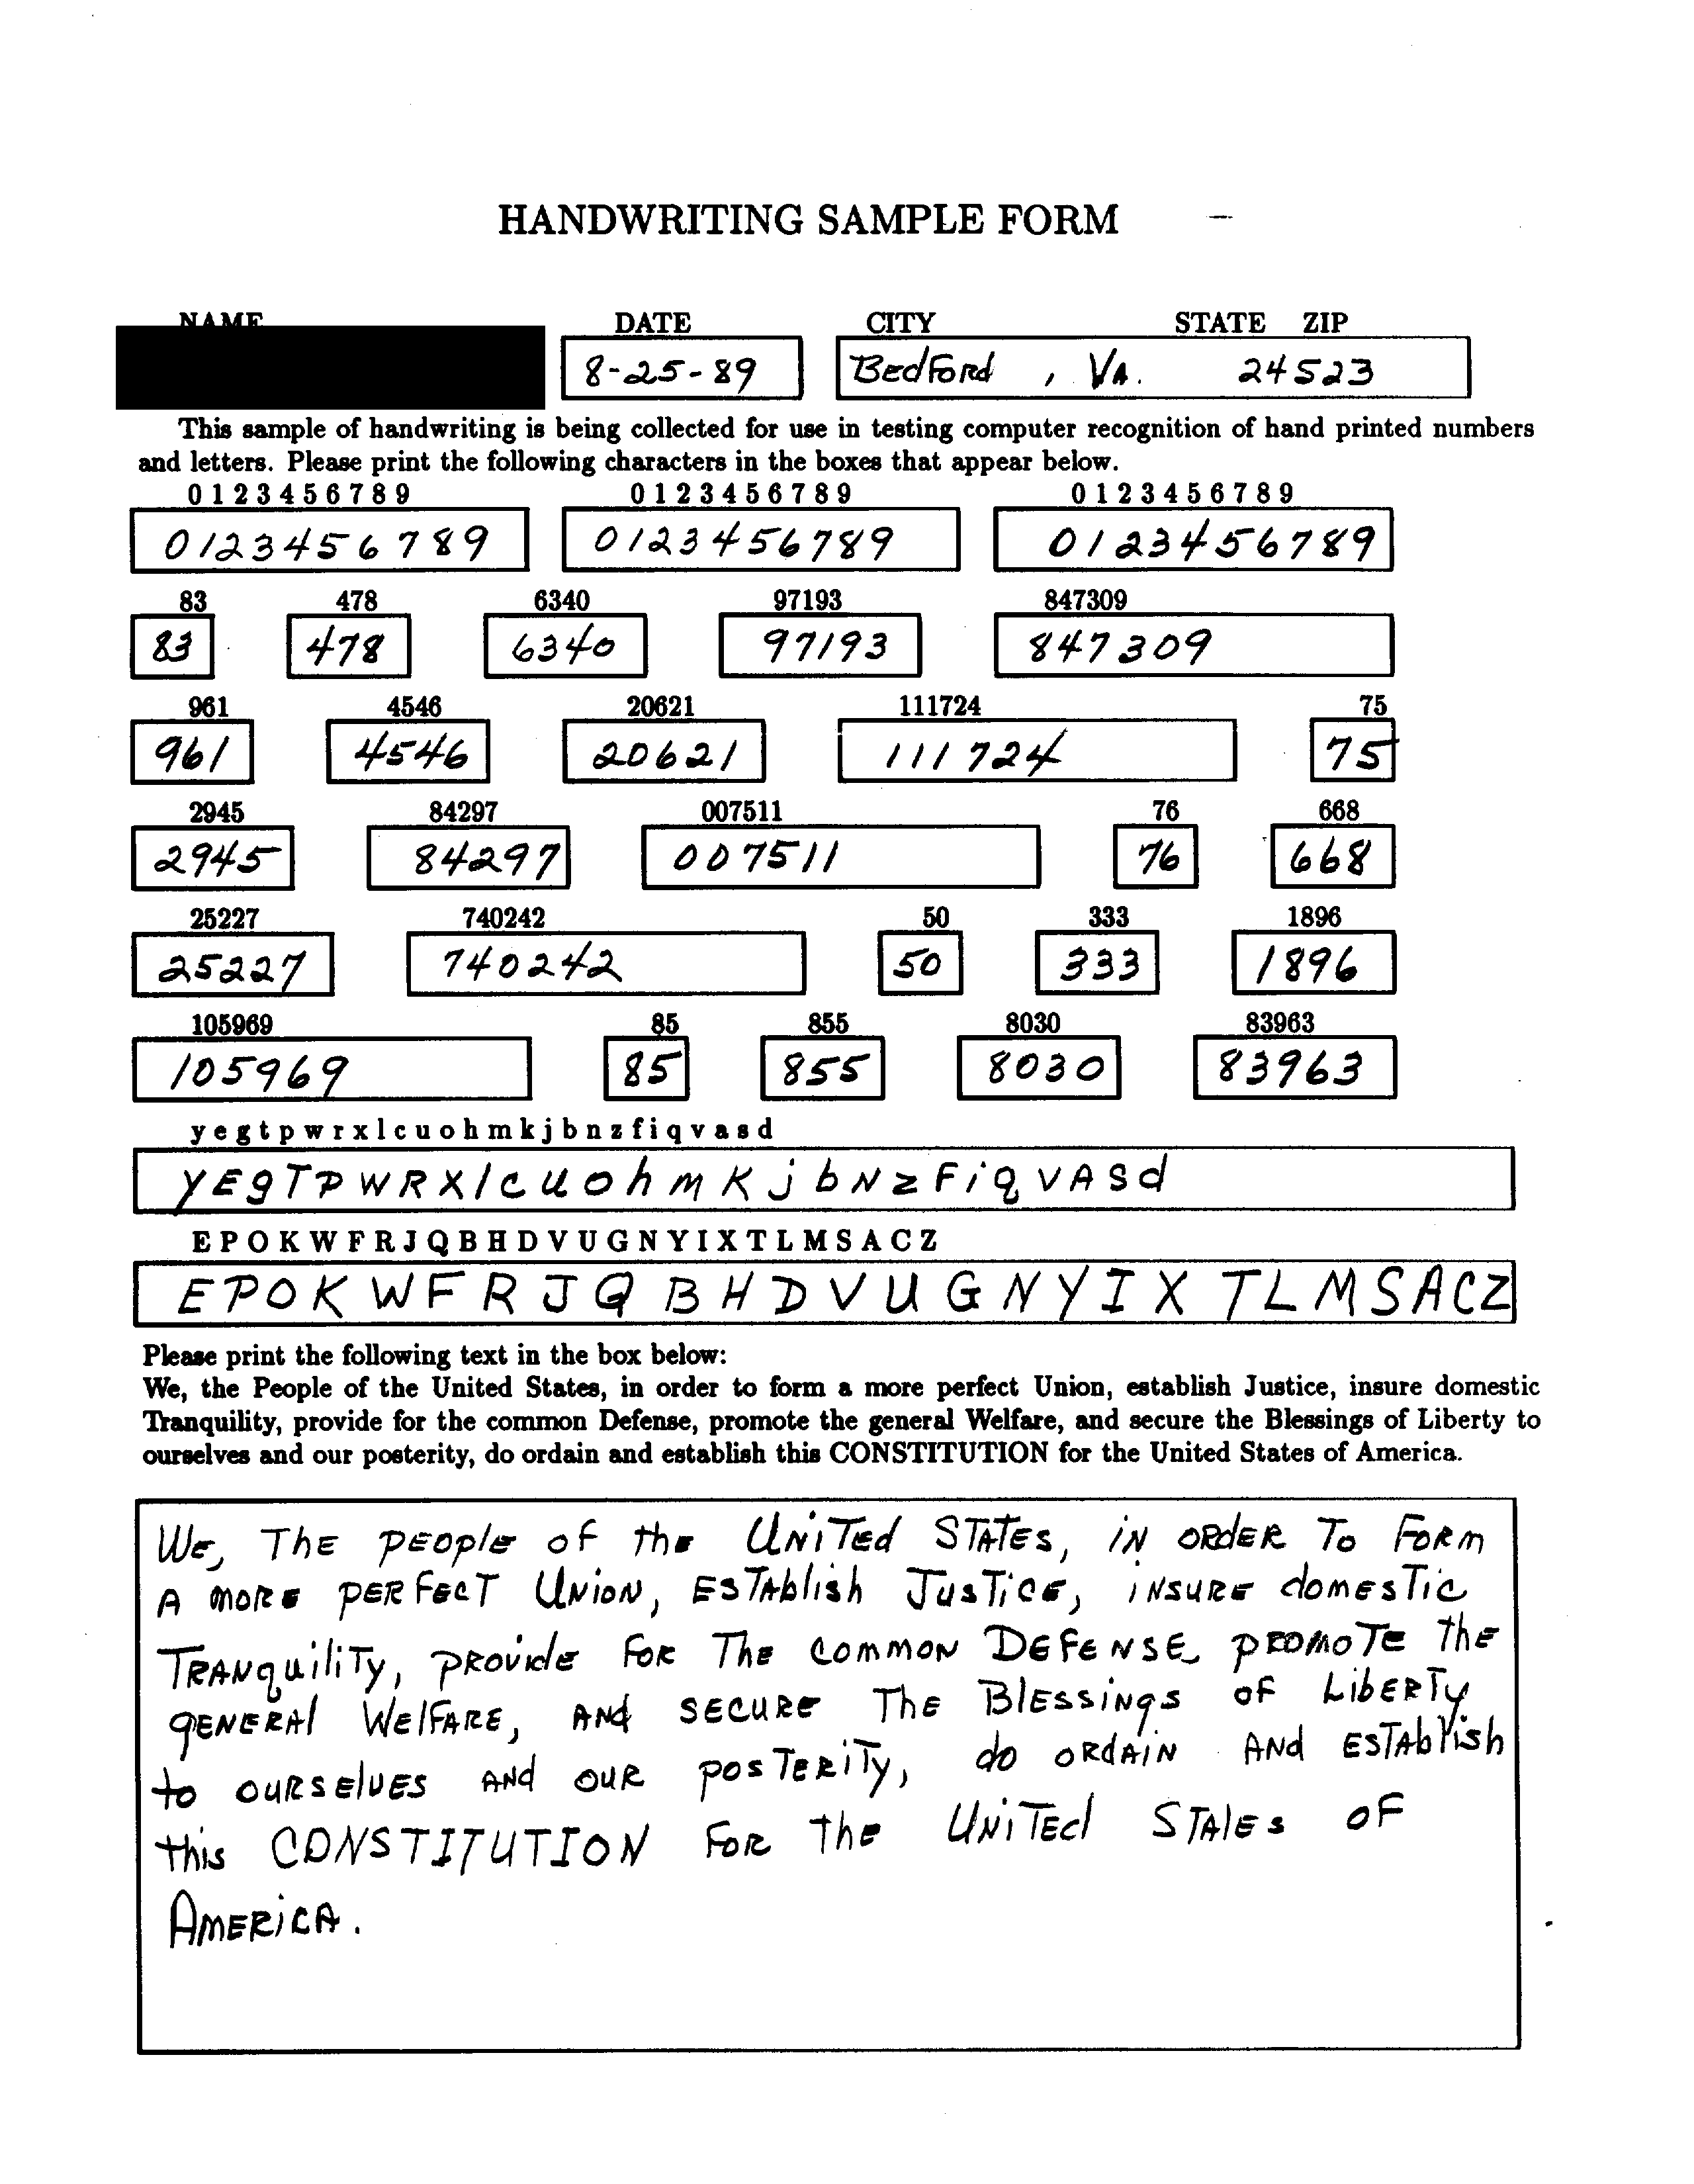 HANDWRITING SAMPLE FORM
NAME DATE CITY STATE ZIP
8-25-89 Bedford , VA. 24523
This sample of handwriting is being collected for use in testing computer recognition of hand printed numbers
and letters. Please print the following characters in the boxes that appear below.
0 1 2 3 4 5 6 7 8 9 0 1 2 3 4 5 6 7 8 9 0 1 2 3 4 5 6 7 8 9
0123456789 0123456789 0123456789
83 478 6340 97193 847309
83 478 6340 97193 847309
961 4546 20621 111724 75
961 4546 20621 111724 75
2945 84297 007511 76 668
2945 84297 007511 76 668
25227 740242 50 333 1896
25227 740242 50 333 1896
105969 85 855 8030 83963
105969 85 855 8030 83963
y e g t p w r x l c u o h m k j b n z f i q v a s d
YEgTPWRXlcuohmKjbNzFiqVASd
E P O K W F R J Q B H D V U G N Y I X T L M S A C Z
EPOKWFRJQBHDVUGNYIXTLMSACZ
Please print the following text in the box below:
We, the People of the United States, in order to form a more perfect Union, establish Justice, insure domestic
Tranquility, provide for the common Defense, promote the general Welfare, and secure the Blessings of Liberty to
ourselves and our posterity, do ordain and establish this CONSTITUTION for the United States of America.
WE, ThE PEOplE oF thE UNiTEd STATES, iN ORDER To FORM
A MORE PERFECT UNioN, ESTAblish JUSTiCE, iNSURE domESTic
TRANquiliTy, PROVidE FOR ThE COMMON DEFENSE, PROMOTE thE
gENERAl WElFARE, ANd SECURE ThE BlESSiNgS oF LibERTy
to OURSElVES ANd OUR POSTERiTy, do ORdAiN ANd ESTAblish
this CONSTITUTION FOR ThE UNiTEd STATES OF
AMERiCA.